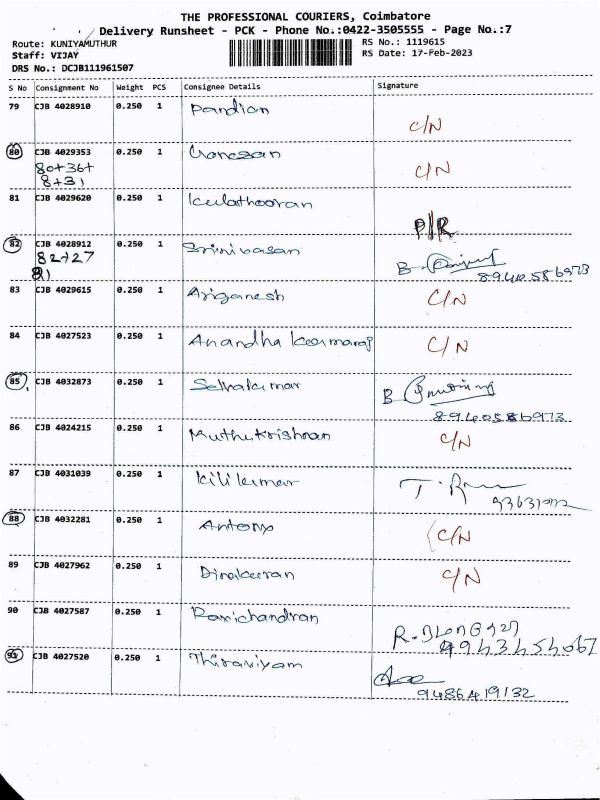 THE PROFESSIONAL COURIERS, Coimbatore
Delivery Runsheet - PCK - Phone No.:0422-3505555 - Page No.:7
Route: KUNIYAMUTHUR RS No.: 1119615
Staff: VIJAY RS Date: 17-Feb-2023
DRS No.: DCJB111961507
S No Consignment No Weight PCS Consignee Details Signature
79 CJB 4028910 0.250 1 Pandian
C/N
80 CJB 4029353 0.250 1 Ganesan
80+36+ C/N
8+31
81 CJB 4029620 0.250 1 Kulathooran
P/R
82 CJB 4028912 0.250 1 Srinivasan
82+27 B.
81 8940586973
83 CJB 4029615 0.250 1 Ariganesh C/N
84 CJB 4027523 0.250 1 Anandha Kumaraj C/N
85 CJB 4032873 0.250 1 Selvakumar B
8940586973
86 CJB 4024215 0.250 1 Muthukrishnan C/N
87 CJB 4031039 0.250 1 Kilikumar T.
88 CJB 4032281 0.250 1 Antony C/N
89 CJB 4027962 0.250 1 Dinakaran C/N
90 CJB 4027587 0.250 1 Ravichandran
R.
9943454067
91 CJB 4027520 0.250 1 Thiraviyam
9486419132